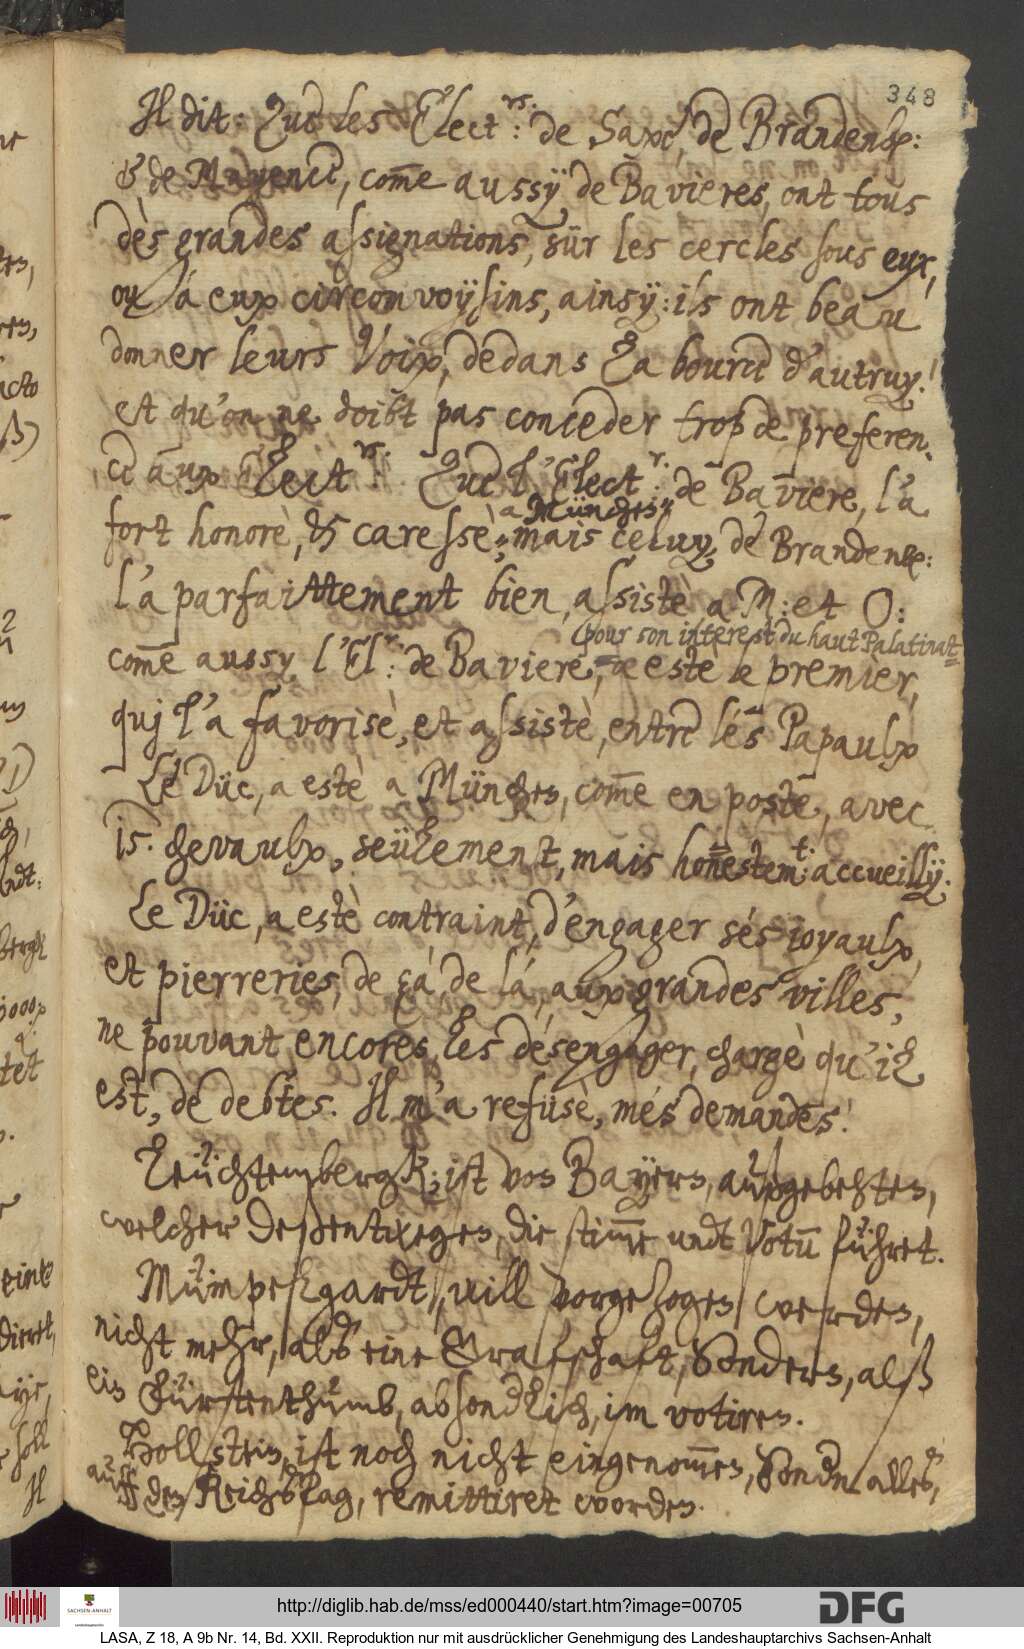 348
Il dit: Que les Elect:rs. de Saxe, de Brandenb:
& de Mayence, com̄e aussÿ de Bavieres, ont tous
dès grandes assignations, sür les cercles sous eux,
oü à eux circonvoÿsins, ainsÿ: ils ont beau
donner leurs Voix, dedans la bource d'autruy!
et qu'on ne doibt pas conceder trop de preferen-
ce aux Elect:rs. Que l'Elect:r. de Baviere, l'a
fort honorè, & caressè a München; mais celuy de Brandenb:
l'a parfaittement bien, assistè a M: et O:
com̄e aussy l'El:r de Baviere, (pour son interest du haut Palatinat) a estè le premier,
quj l'a favorisè, et assistè, entre lés Papaulx
Le Düc, a estè a München, com̄e en poste, avec
15. chevaulx, seülement, mais hon̄estem:t accueillÿ.
Le Düc, a estè contraint, d'engager sés joyaulx,
et pierreries, de çá, de lá, aux grandes villes,
ne pouvant encores les désengager, chargè qu'il
est, de debtes. Il m'a refüsè, més demandes!
Leüchtembergk: ist von Bayern, außgebehten,
welcher deßentwegen, die stim̄e undt Votū führet.
Mümpelgardt, will vorgezogen werden,
nicht mehr, als eine Graffschaft, sondern, alß
ein Fürstenthumb, absonderlich, im votiren.
Hollstein, ist noch nicht eingenom̄en, sondn alles,
auff den Reichstag, remittiret worden.
http://diglib.hab.de/mss/ed000440/start.htm?image=00705
SACHSEN-ANHALT
DFG
LASA, Z 18, A 9b Nr. 14, Bd. XXII. Reproduktion nur mit ausdrücklicher Genehmigung des Landeshauptarchivs Sachsen-Anhalt